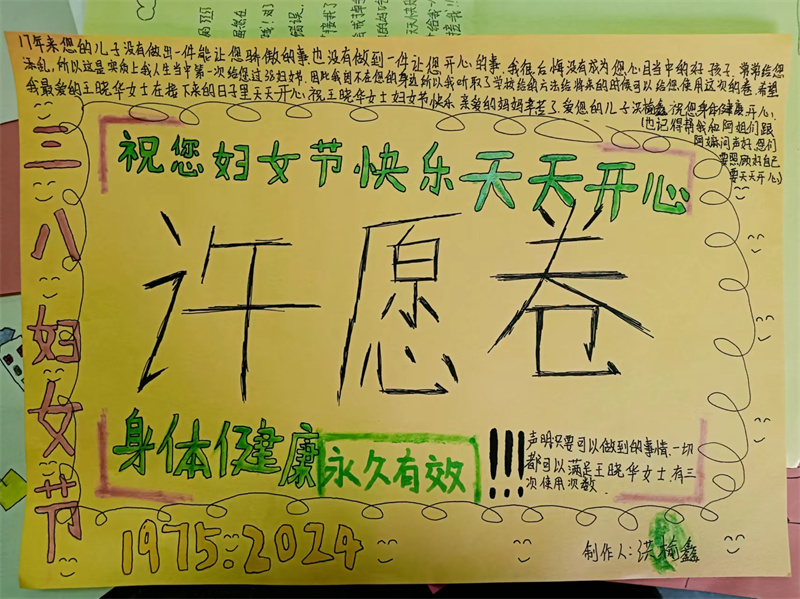 17年来您的儿子没有做出一件能让您骄傲的事也没有做到一件让您开心的事.我很后悔没有成为您心目当中的好孩子,常常给您
添乱,所以这是实质上我人生当中第一次给您过38妇女节.因此我因不在您的身边所以我听取了学校给的方法给将来的时候可以给您使用这次的卷.希望
我最爱的王晓华女士在接下来的日子里天天开心.祝王晓华女士妇女节快乐.亲爱的妈妈辛苦了.爱您的儿子洪楠鑫祝您身体健康开心.
也记得帮我和阿姐们跟
阿嫲问声好.您们
要照顾好自己
要天天开心
三八妇女节
祝您妇女节快乐天天开心
许愿卷
身体健康
永久有效
!!!
声明只要可以做到的事情.一切
都可以满足王晓华女士.有三
次使用次数.
1975:2024
制作人:洪楠鑫